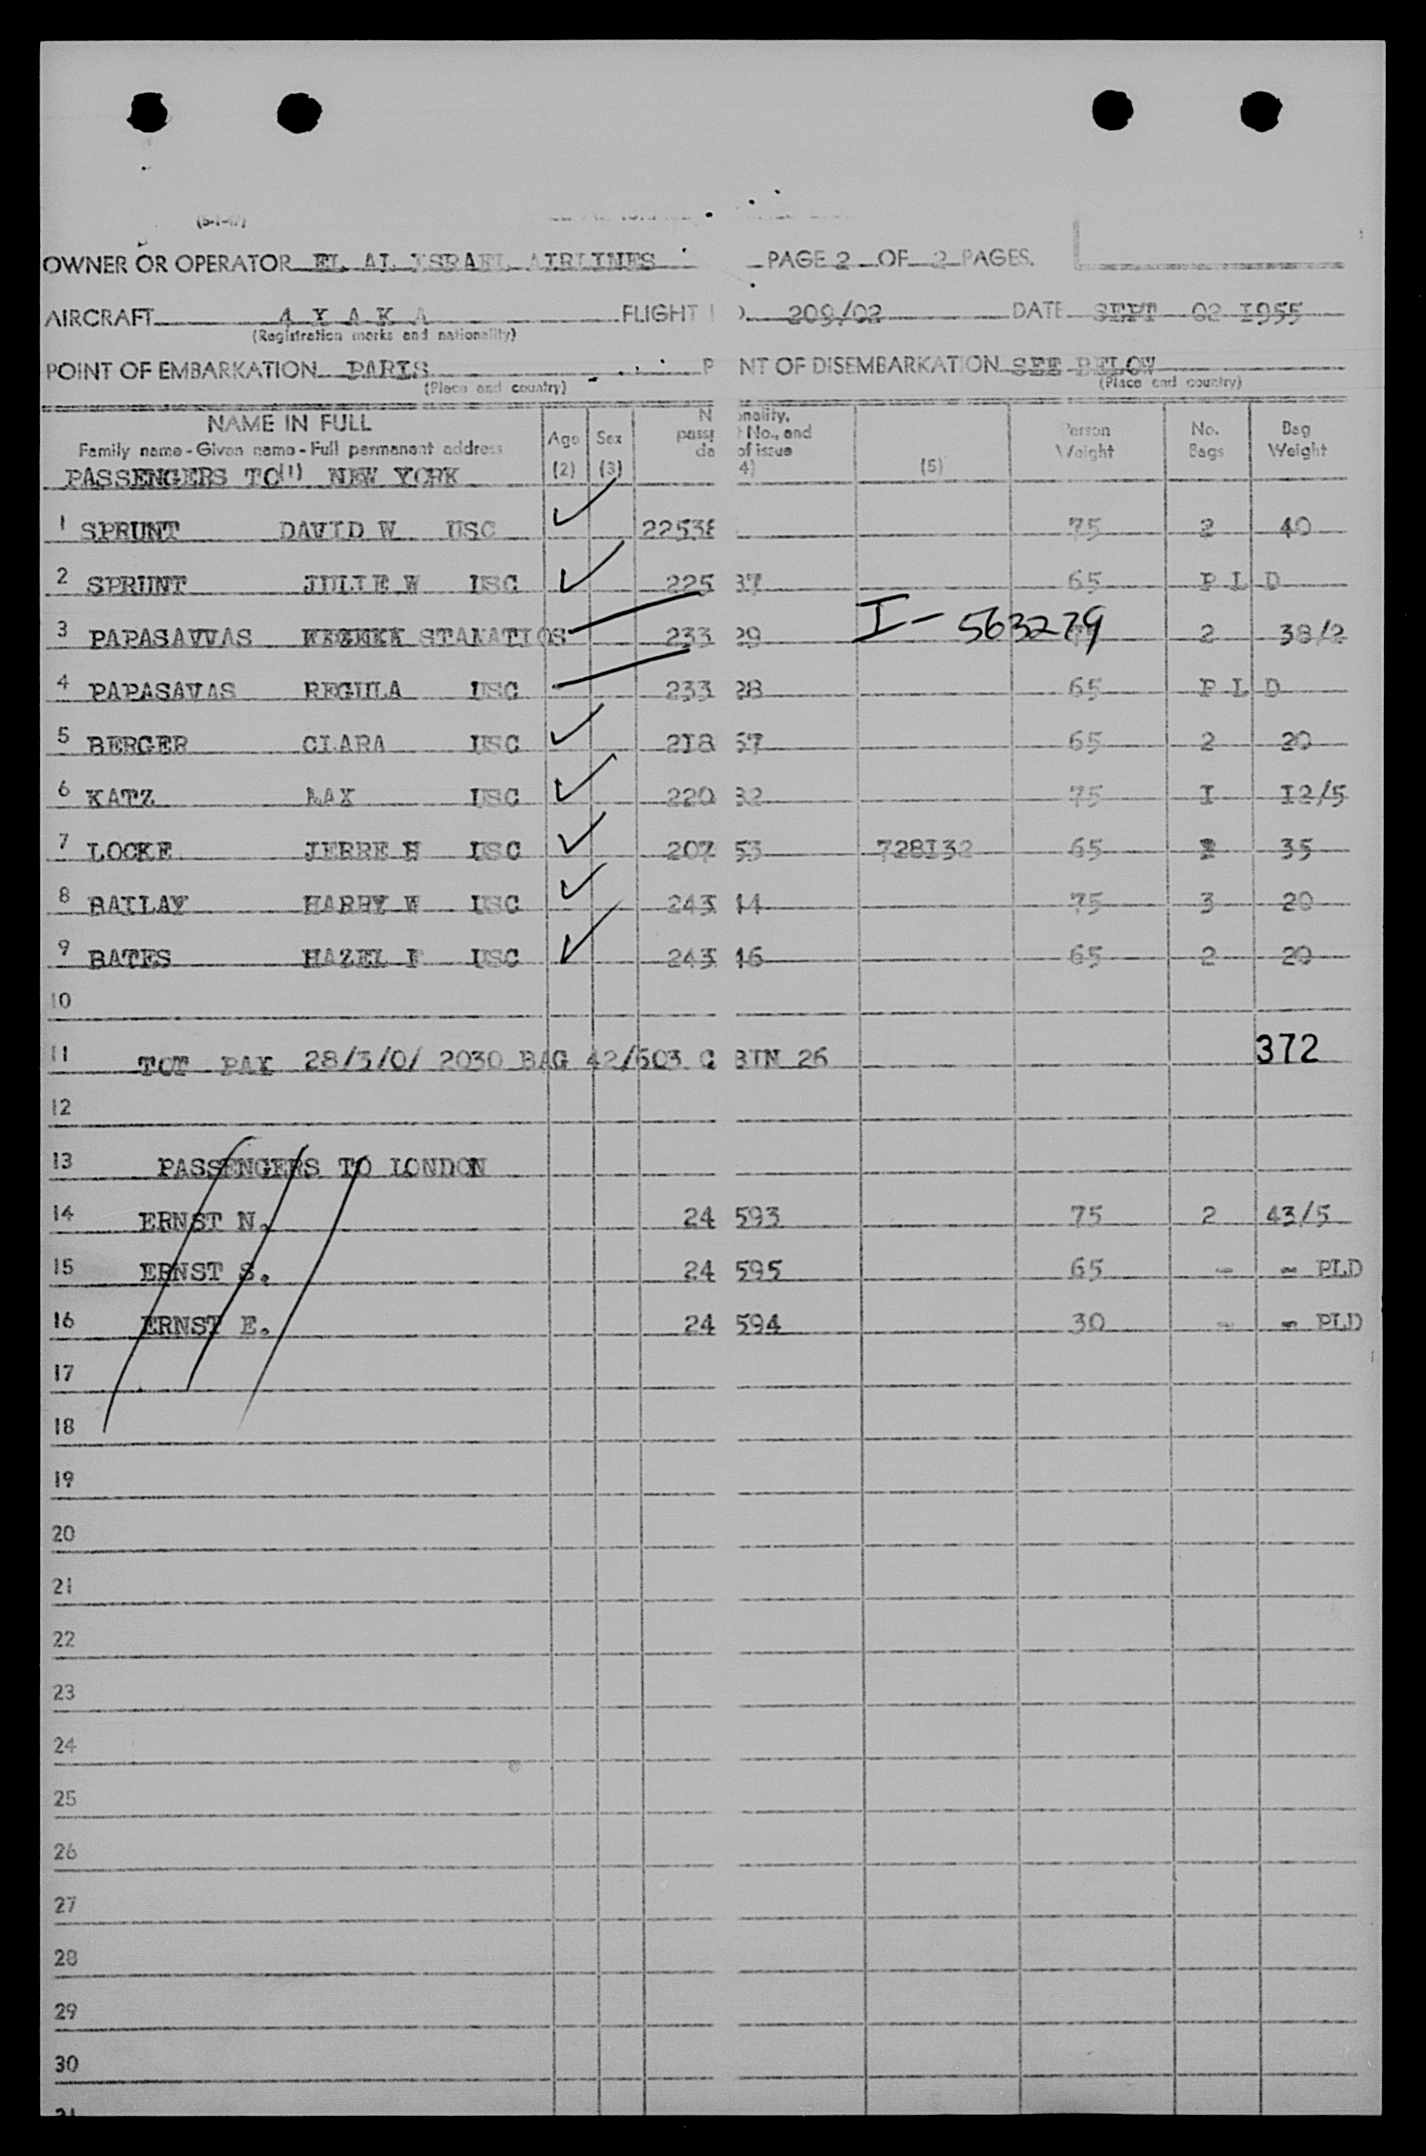 OWNER OR OPERATOR EL AL ISRAEL AIRLINES PAGE 2 OF 2 PAGES.
AIRCRAFT 4 X A K A FLIGHT 209/02 DATE SEPT 02 I955
(Registration marks and nationality)
POINT OF EMBARKATION PARIS P NT OF DISEMBARKATION SEE BELOW
(Place and country) (Place and country)
NAME IN FULL
Family name - Given name - Full permanent address
Age (2) Sex (3) N onality, pass No., and da of issue 4) (5) Person Weight No. Bags Bag Weight
PASSENGERS TO (1) NEW YORK
1 SPRUNT DAVID W USC 22538 75 2 40
2 SPRUNT JULIE W USC 225 37 65 P L D
3 PAPASAVVAS STAMATIOS 233 29 I-563279 2 38/2
4 PAPASAVAS REGULA USC 233 28 65 P L D
5 BERGER CLARA USC 2I8 57 65 2 20
6 KATZ MAX USC 220 32 75 I I2/5
7 LOCKE JERRE H USC 207 53 728I32 65 35
8 BAILAY HARRY W USC 243 44 75 3 20
9 BATES HAZEL F USC 243 46 65 2 20
10
11 TOT PAX 28/3/0/ 2030 BAG 42/603 C BIN 26 372
12
13 PASSENGERS TO LONDON
14 ERNST N. 24 593 75 2 43/5
15 ERNST S. 24 595 65 - - PLD
16 ERNST E. 24 594 30 - - PLD
17
18
19
20
21
22
23
24
25
26
27
28
29
30